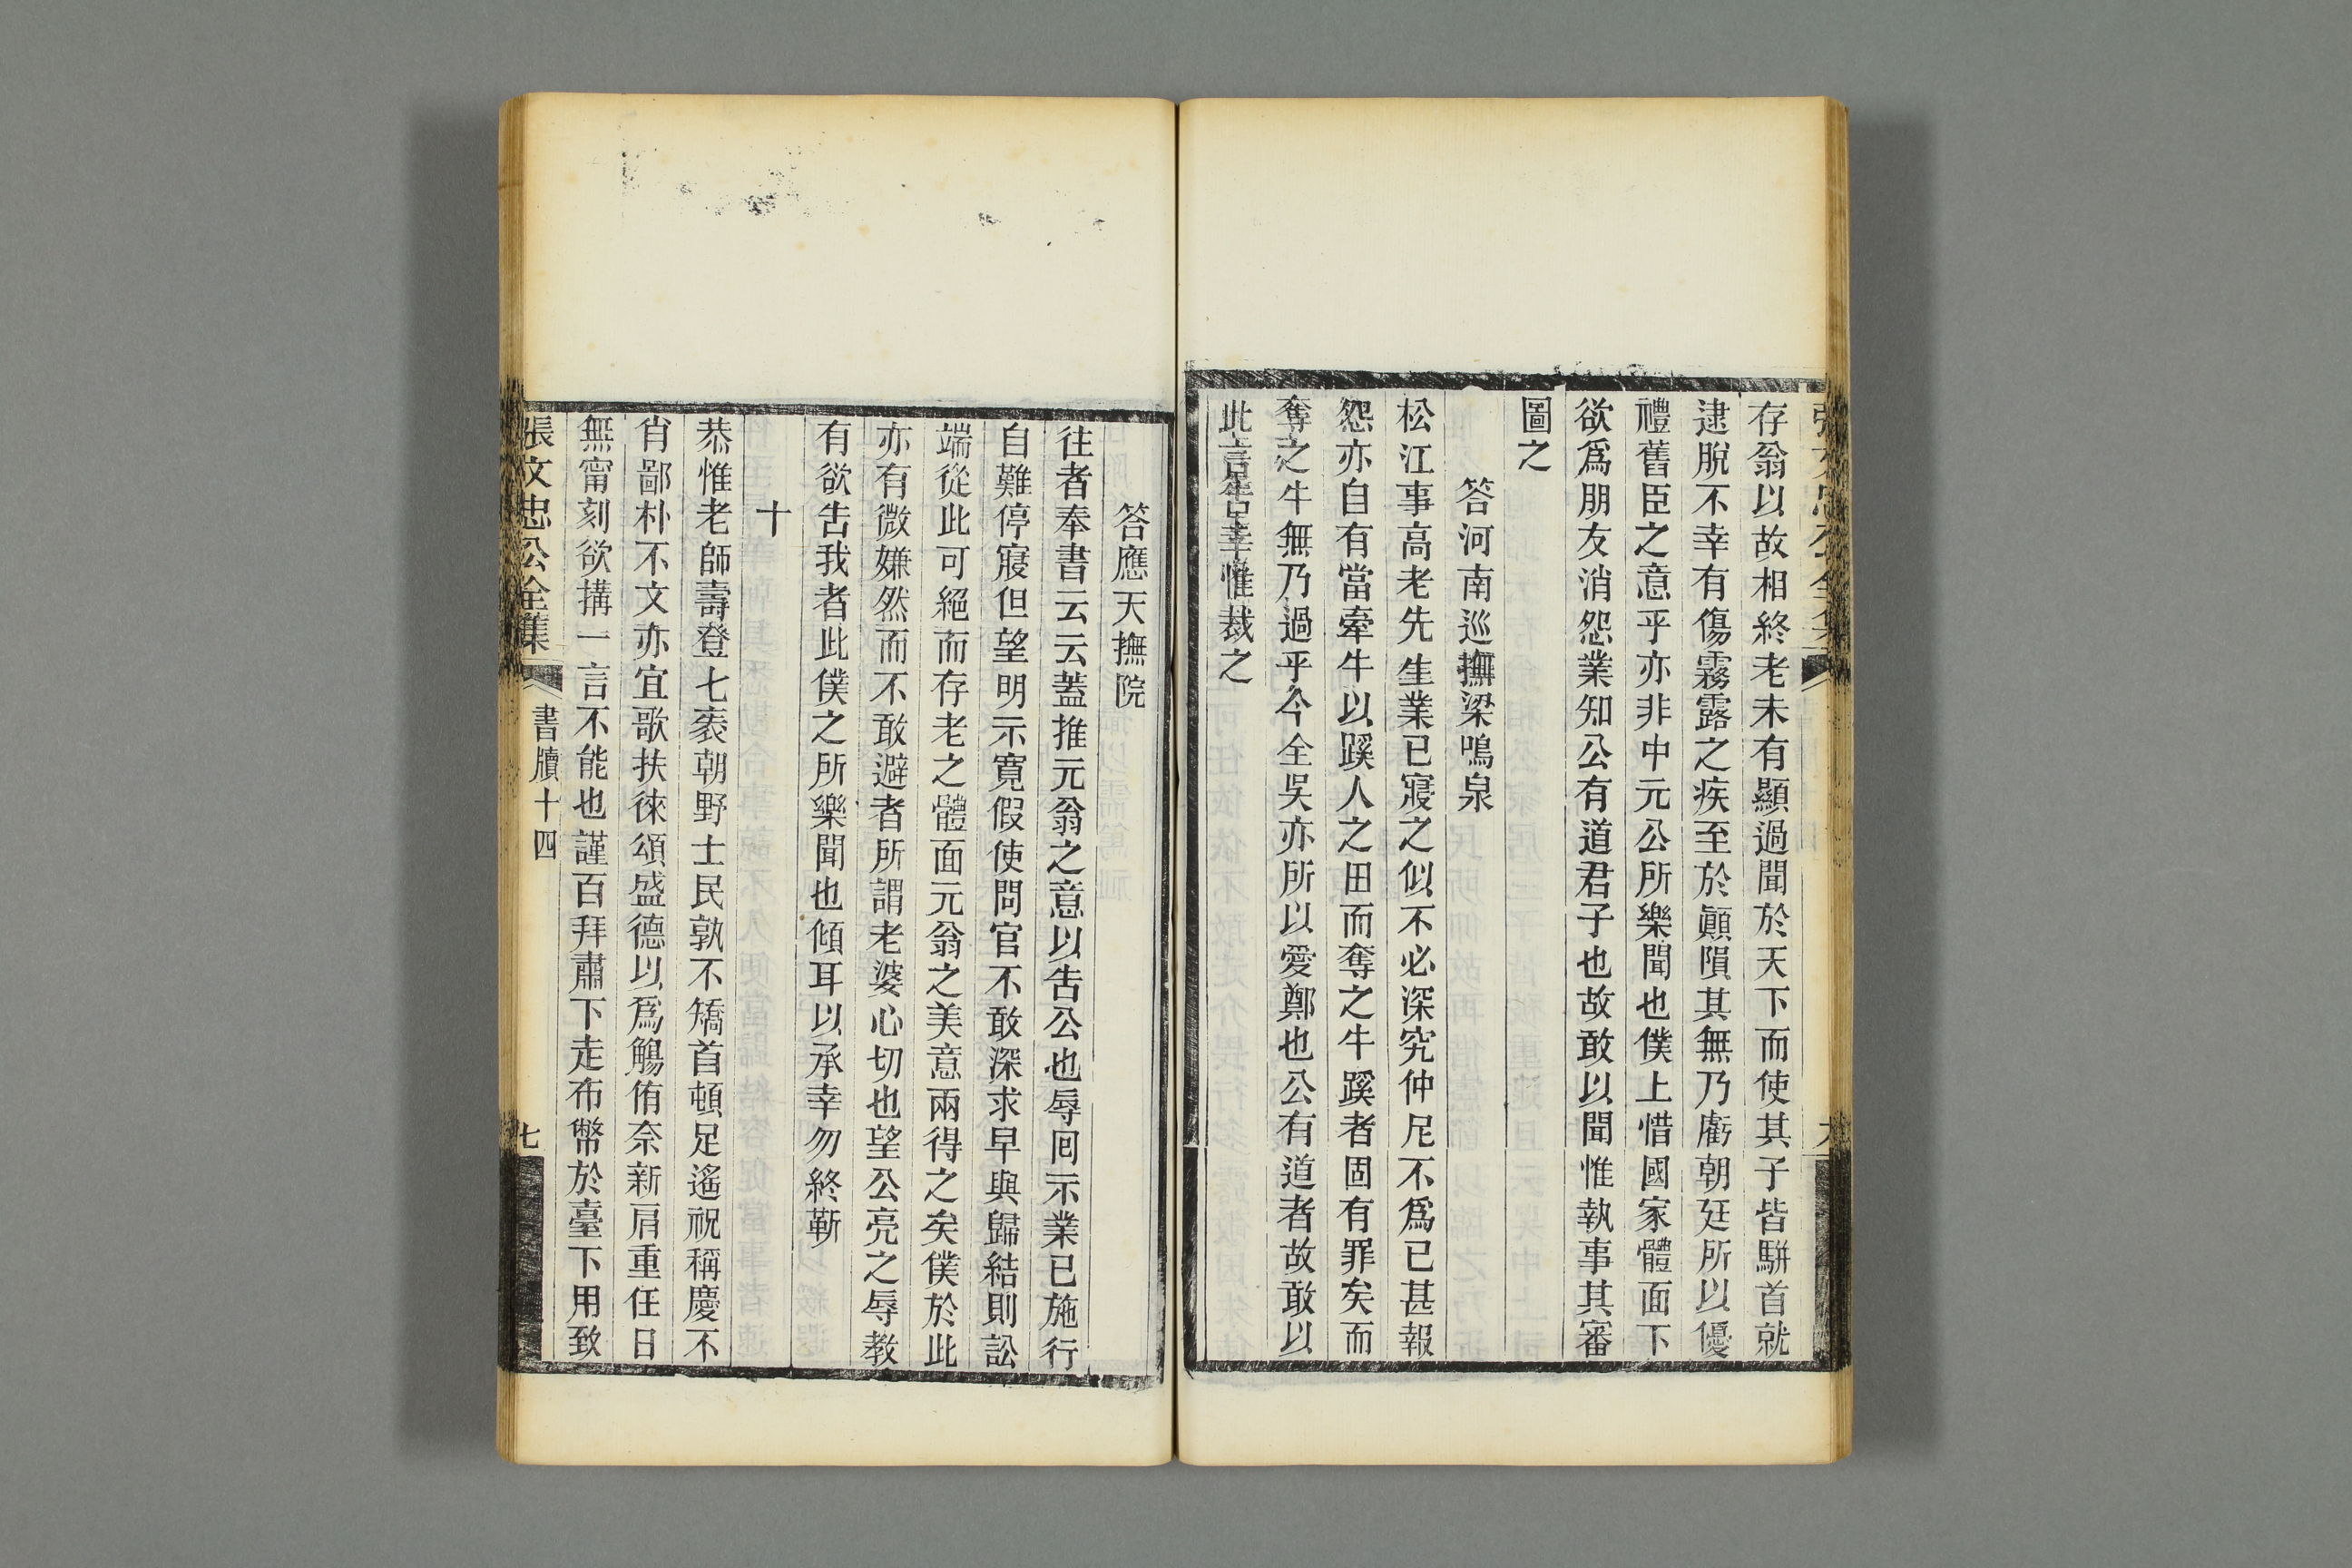 存翁以故相終老未有顯過聞於天下而使其子皆駢首就
逮脫不幸有傷霧露之疾至於顚隕其無乃虧朝廷所以優
禮舊臣之意乎亦非中元公所樂聞也僕上惜國家體面下
欲爲朋友消怨業知公有道君子也故敢以聞惟執事其審
圖之
答河南巡撫梁鳴泉
松江事高老先生業已寢之似不必深究仲尼不爲已甚報
怨亦自有當牽牛以蹊人之田而奪之牛蹊者固有罪矣而
奪之牛無乃過乎今全吳亦所以愛鄭也公有道者故敢以
此言告幸惟裁之
答應天撫院
往者奉書云云蓋推元翁之意以告公也辱囘示業已施行
自難停寢但望明示寬假使問官不敢深求早與歸結則訟
端從此可絕而存老之體面元翁之美意兩得之矣僕於此
亦有微嫌然而不敢避者所謂老婆心切也望公亮之辱教
有欲告我者此僕之所樂聞也傾耳以承幸勿終靳
十
恭惟老師壽登七袠朝野士民孰不矯首頓足遙祝稱慶不
肖鄙朴不文亦宜歌扶徠頌盛德以爲觴侑奈新肩重任日
無甯刻欲搆一言不能也謹百拜肅下走布幣於臺下用致
張文忠公全集
書牘十四
七